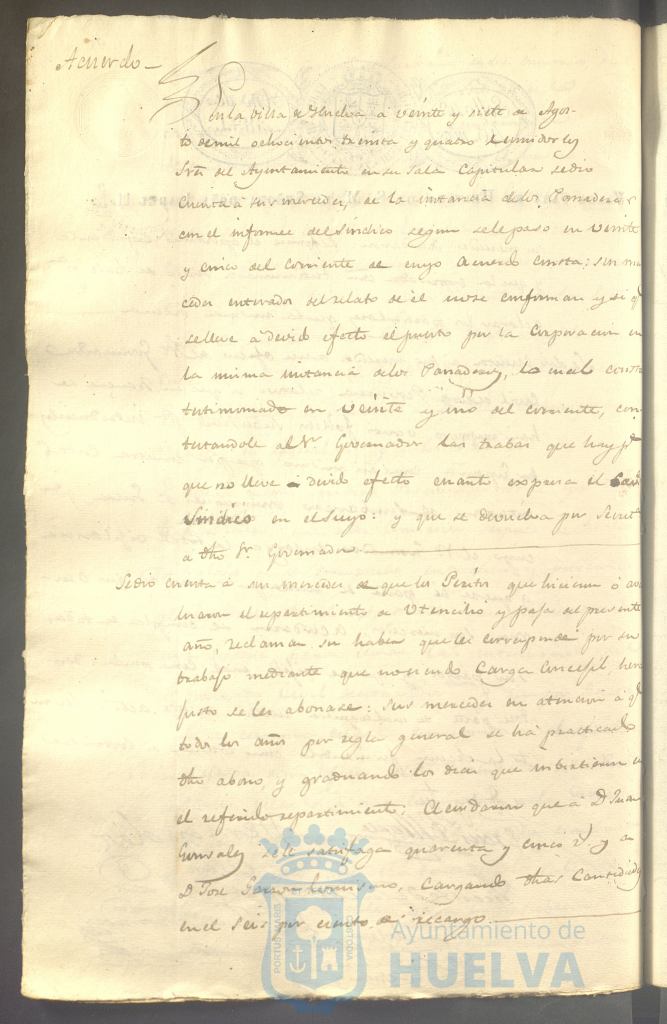 Acuerdo
En la Villa de Huelva a veinte y siete de Agos-
to de mil ochocientos treinta y quatro reunidos los
Sres del Ayuntamiento en su Sala Capitular se dio
cuenta a sus mercedes, de la instancia de los Panaderos
con el informe del Sindico segun se le paso en veinte
y cinco del corriente de cuyo Acuerdo consta: sus mer
cedes enterados del relato de el se conforman y si qe
se lleve a devido efecto el puesto por la Corporacion en
la misma instancia de los Panaderos, lo cual consta
testimoniado en veinte y uno del corriente, con
testandole al Sr. Governador las trabas que hay pa
que no lleve a devido efecto cuanto expresa el
Sindico en el suyo: y que se devuelva por Secreta
a dho Sr. Governador
Se dio cuenta a sus mercedes de que los Peritos que hicieron o
el repartimiento de Utencilio y paja del presente
año, reclaman su haber que les corresponde por su
trabajo mediante que no siendo Carga Concejil
justo se les abonase: sus mercedes en atencion a qe
todos los años por regla general se ha practicado
dho abono, y graduando los dias que imbirtieron en
el referido repartimiento: Acordaron que a D. Juan
Gonsalez se le satisfaga quarenta y cinco rs y a
D. Jose Garzon lo mismo, cargando dhas Cantidades
en el seis por ciento de recargo.
PORTUS MARIS
CUSTODIA
Ayuntamiento de
HUELVA